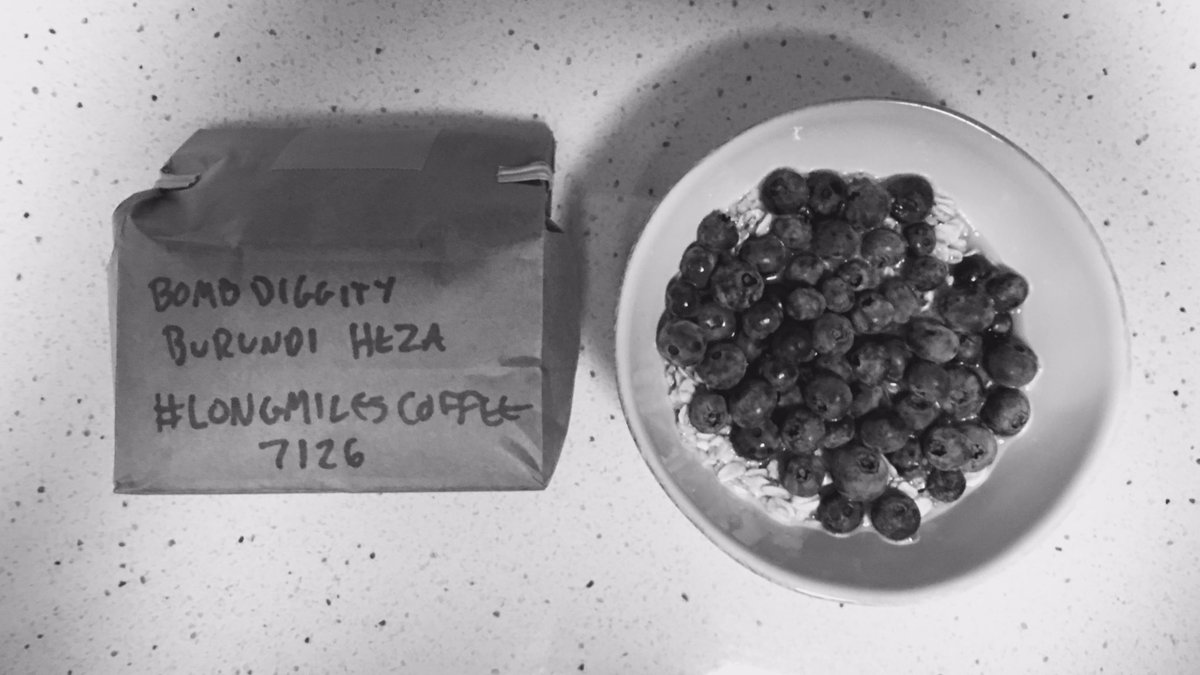 BOMB DIGGITY
BURUNDI HEZA
#LONGMILESCOFFEE
7126